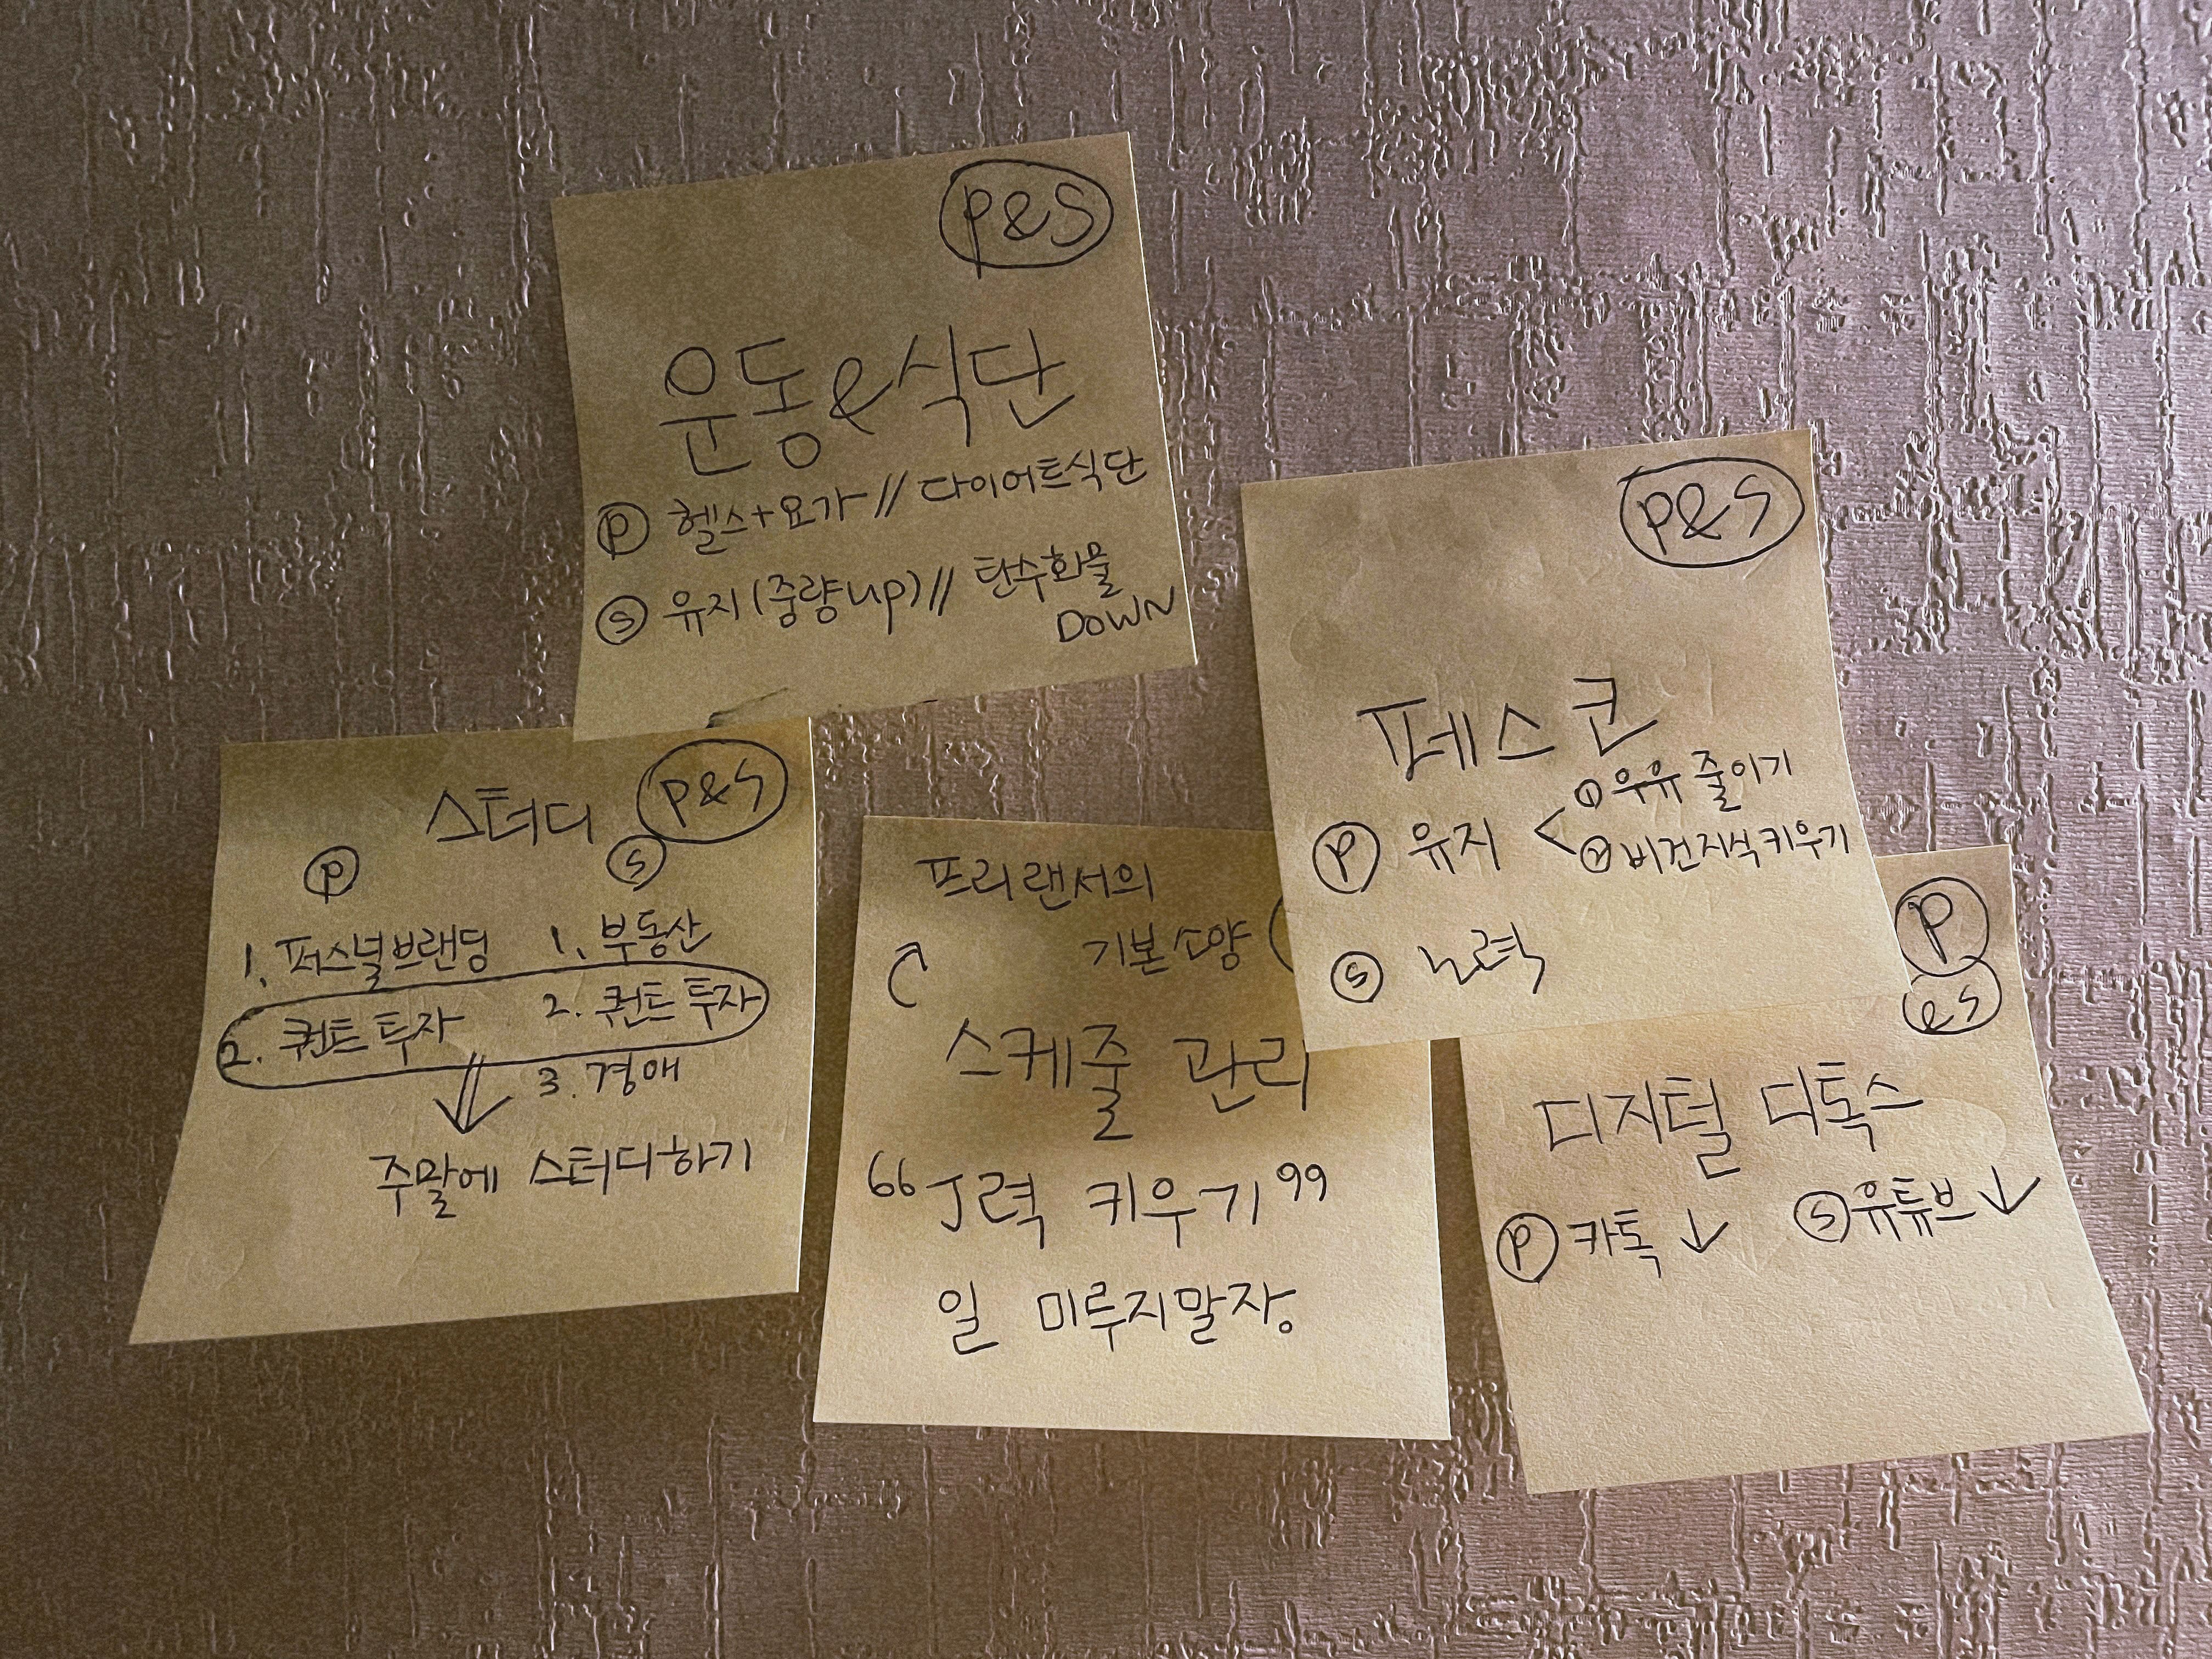 P&S
운동&식단
Ⓟ 헬스+요가 // 다이어트식단
Ⓢ 유지(중량up) // 탄수화물
DOWN
스터디 P&S
Ⓟ Ⓢ
1. 퍼스널브랜딩 1. 부동산
2. 퀀트 투자 2. 퀀트 투자
3. 경매
주말에 스터디하기
프리랜서의
기본소양
스케줄 관리
“J력 키우기”
일 미루지말장
P&S
페스코
Ⓟ 유지 < ① 우유 줄이기
② 비건지식키우기
Ⓢ 노력
P
&S
디지털 디톡스
Ⓟ 카톡 ↓ Ⓢ 유튜브 ↓